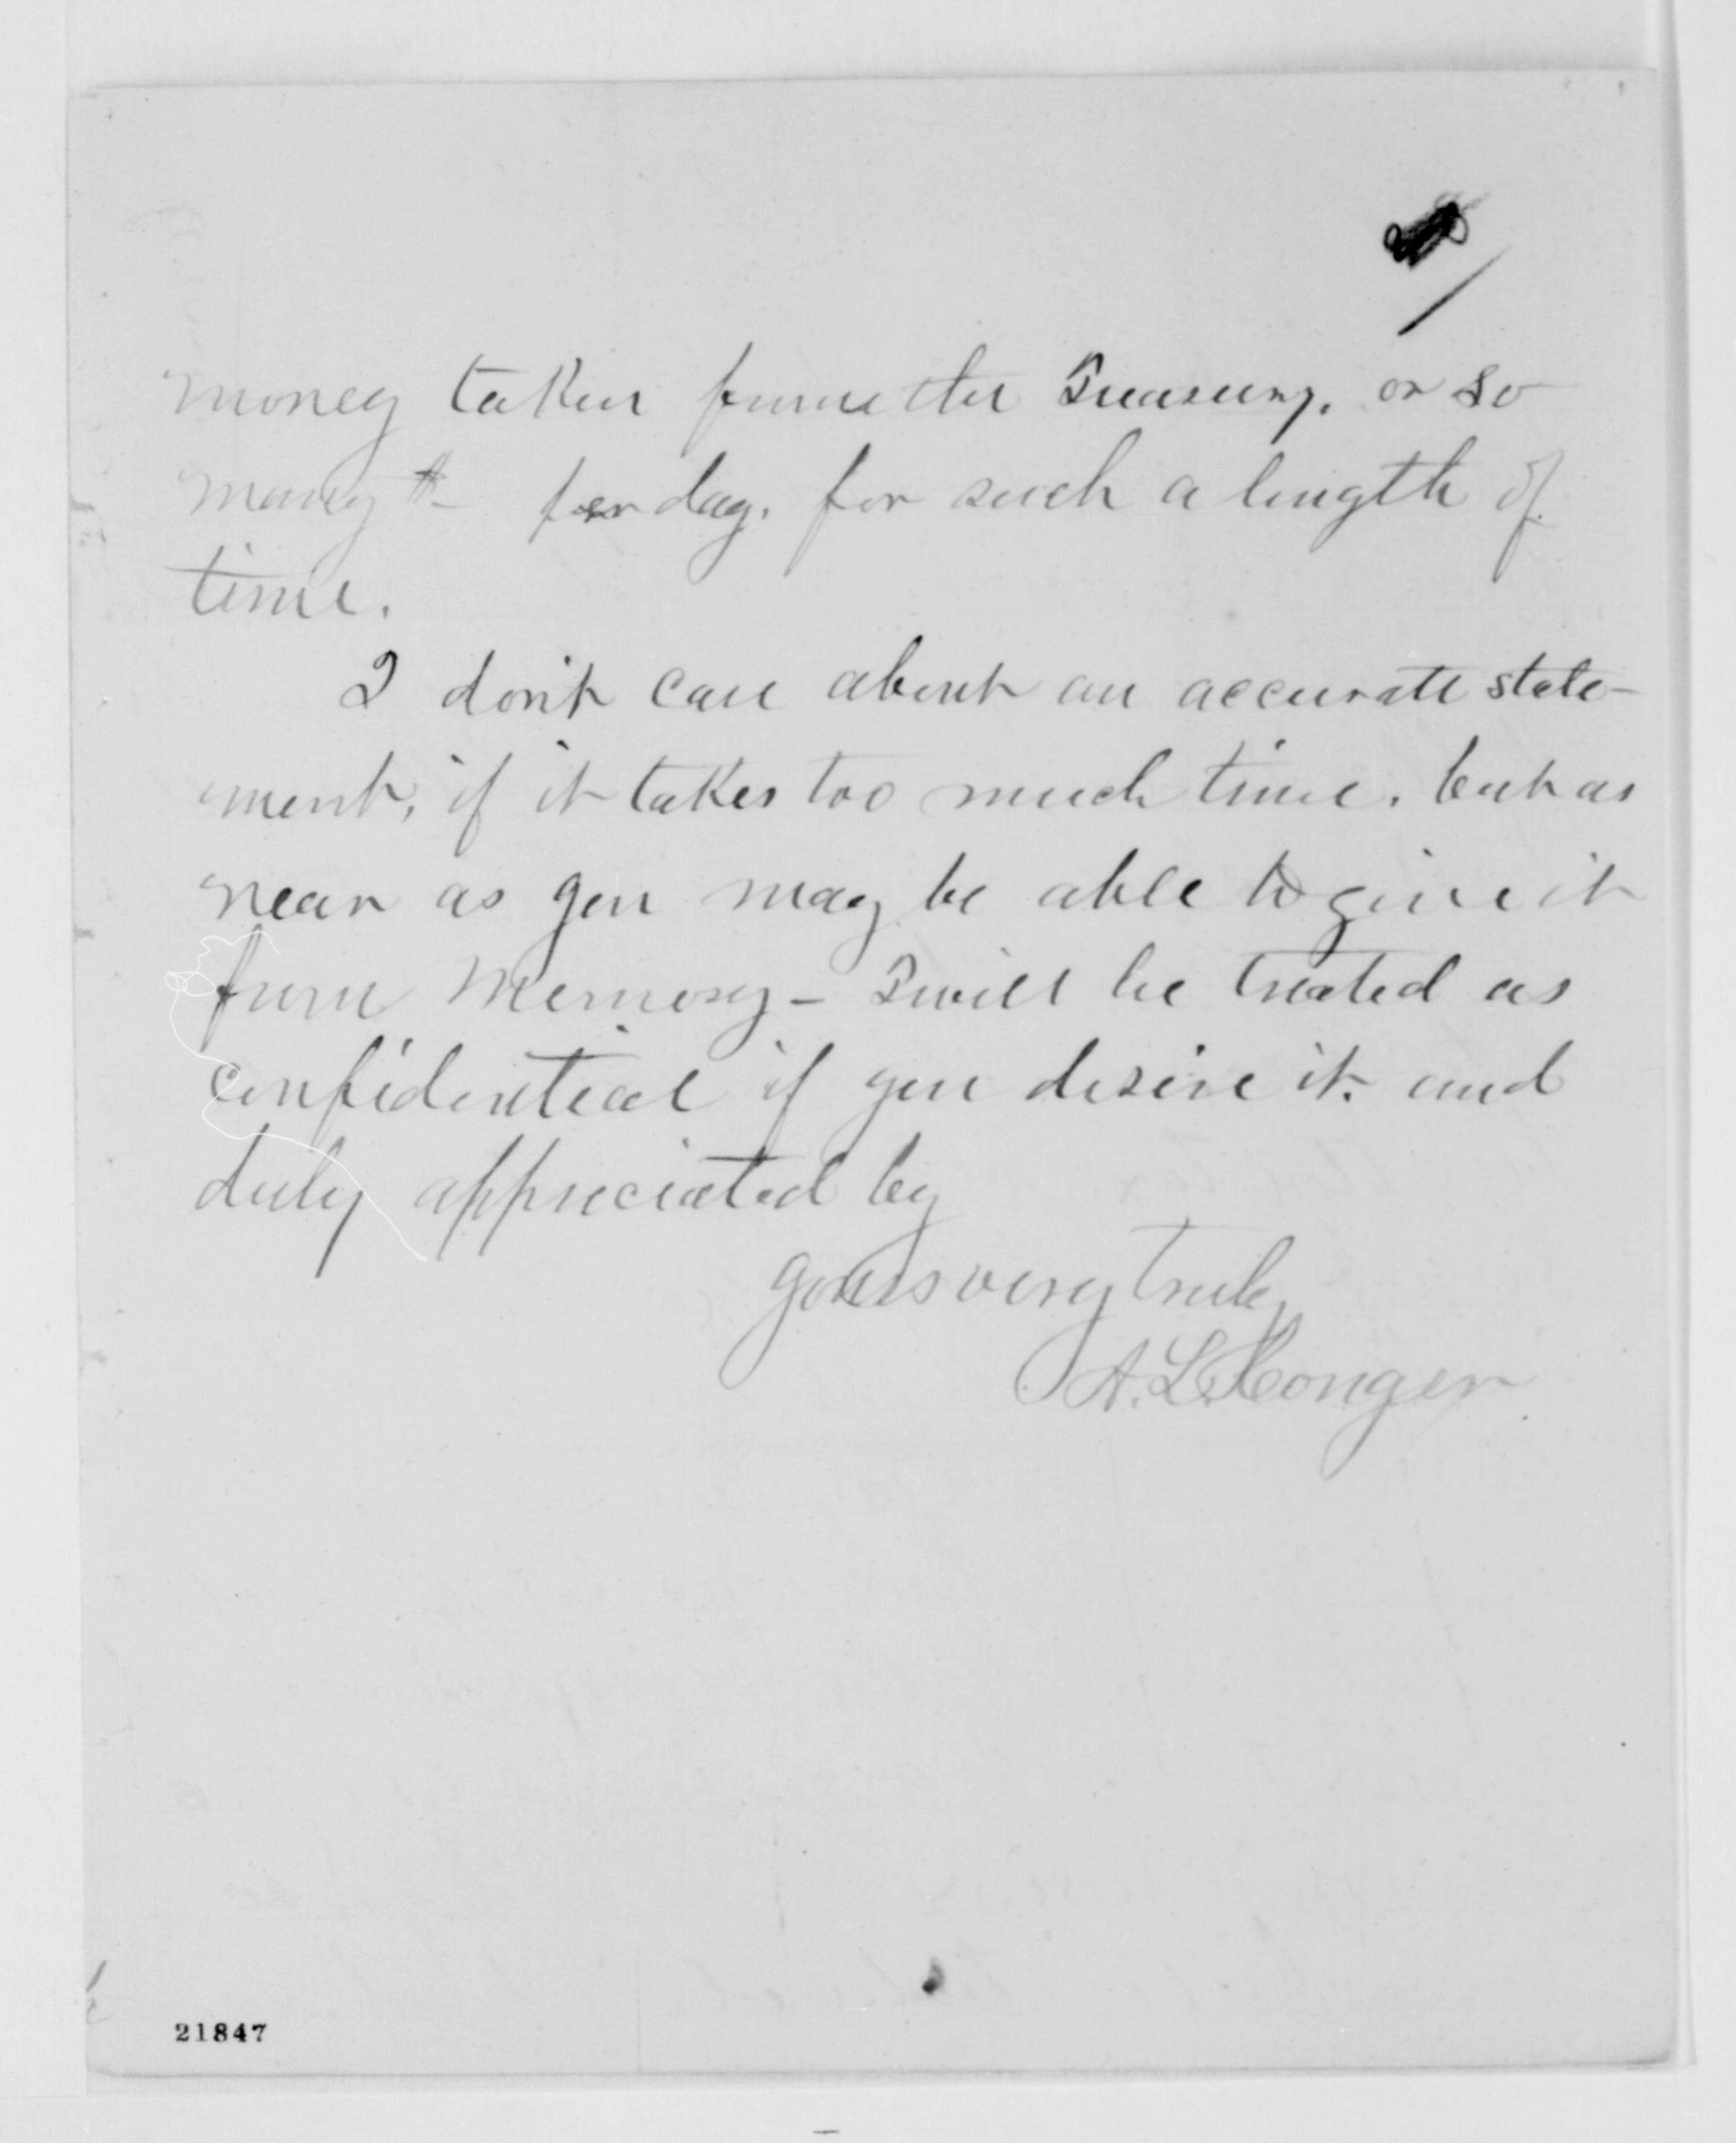 money taken from the Treasury. or so
many $ per day. for such a length of
time.
I don't care about an accurate state-
ment, if it takes too much time. but as
near as you may be able to give it
from memory - I will be treated as
confidential if you desire it. and
duly appreciated by
yours very truly
A. L. Conger
21847